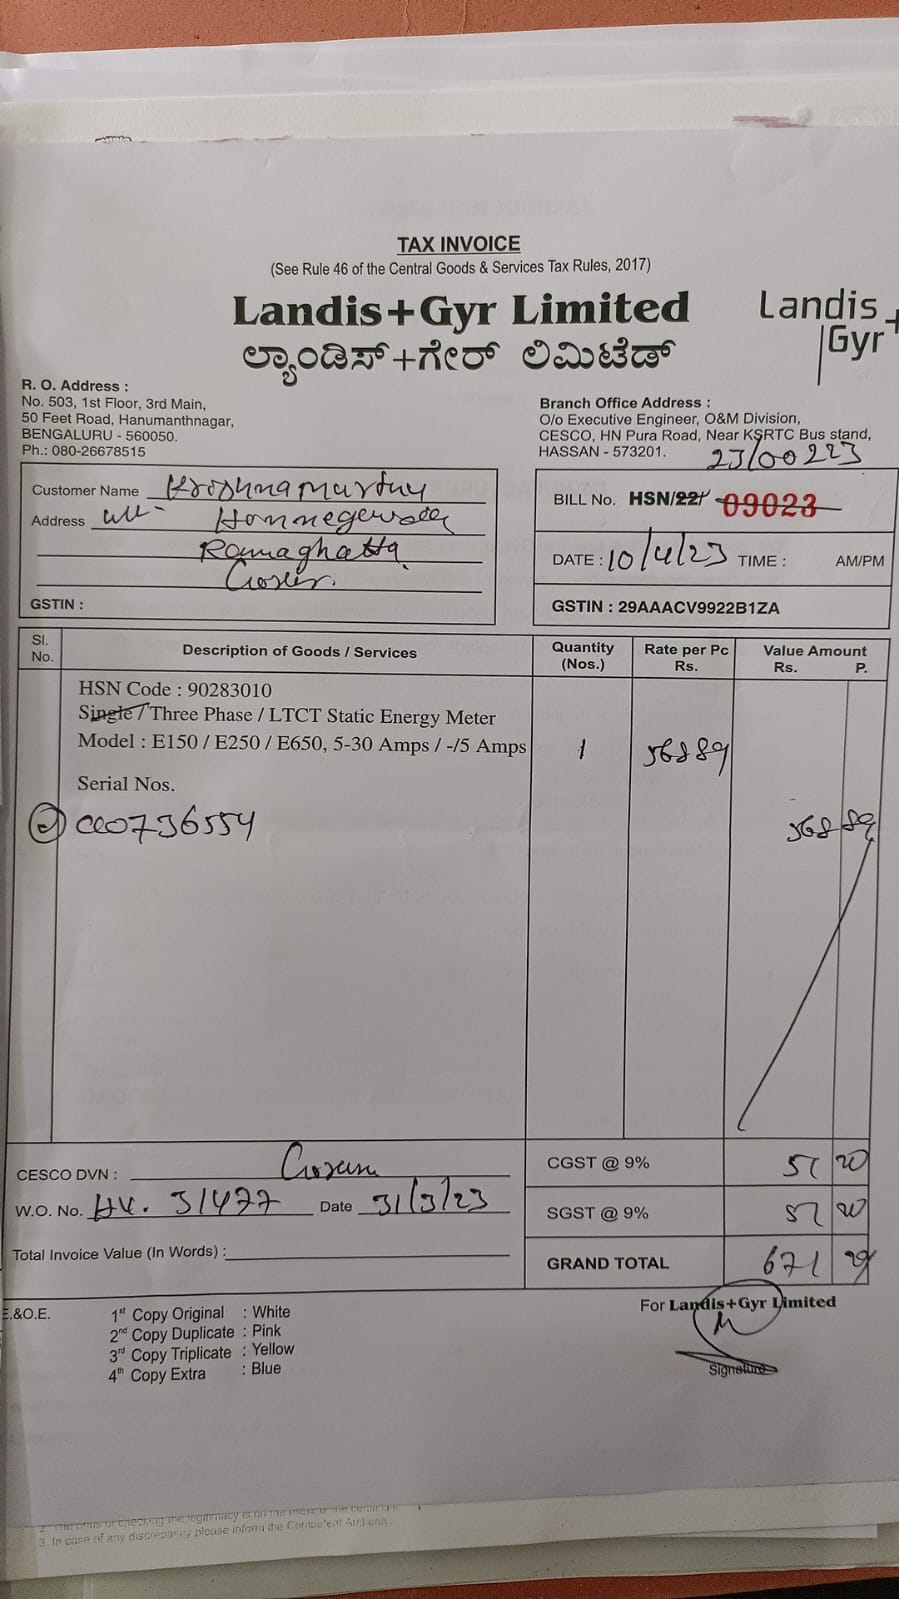 TAX INVOICE
(See Rule 46 of the Central Goods & Services Tax Rules, 2017)
Landis+Gyr Limited
Landis
Gyr+
ಲ್ಯಾಂಡಿಸ್+ಗೇರ್ ಲಿಮಿಟೆಡ್
R. O. Address :
No. 503, 1st Floor, 3rd Main,
50 Feet Road, Hanumanthnagar,
BENGALURU - 560050.
Ph.: 080-26678515
Branch Office Address :
O/o Executive Engineer, O&M Division,
CESCO, HN Pura Road, Near KSRTC Bus stand,
HASSAN - 573201.
23/00223
Customer Name Krishnamurthy
Address
Ramaghatta
GSTIN :
BILL No. HSN/22/ 09023
DATE : 10/4/23 TIME : AM/PM
GSTIN : 29AAACV9922B1ZA
Sl. No. Description of Goods / Services Quantity (Nos.) Rate per Pc Rs. Value Amount Rs. P.
HSN Code : 90283010
Single / Three Phase / LTCT Static Energy Meter
Model : E150 / E250 / E650, 5-30 Amps / -/5 Amps 1 568 89
Serial Nos.
0736554 568 89
CESCO DVN :
CGST @ 9% 51 20
W.O. No. 31477 Date 31/3/23
SGST @ 9% 51 20
Total Invoice Value (In Words) :
GRAND TOTAL 671 29
E.&O.E.
1st Copy Original : White
2nd Copy Duplicate : Pink
3rd Copy Triplicate : Yellow
4th Copy Extra : Blue
For Landis+Gyr Limited
Signature
3. In case of any discrepancy please inform the Competent Authority.